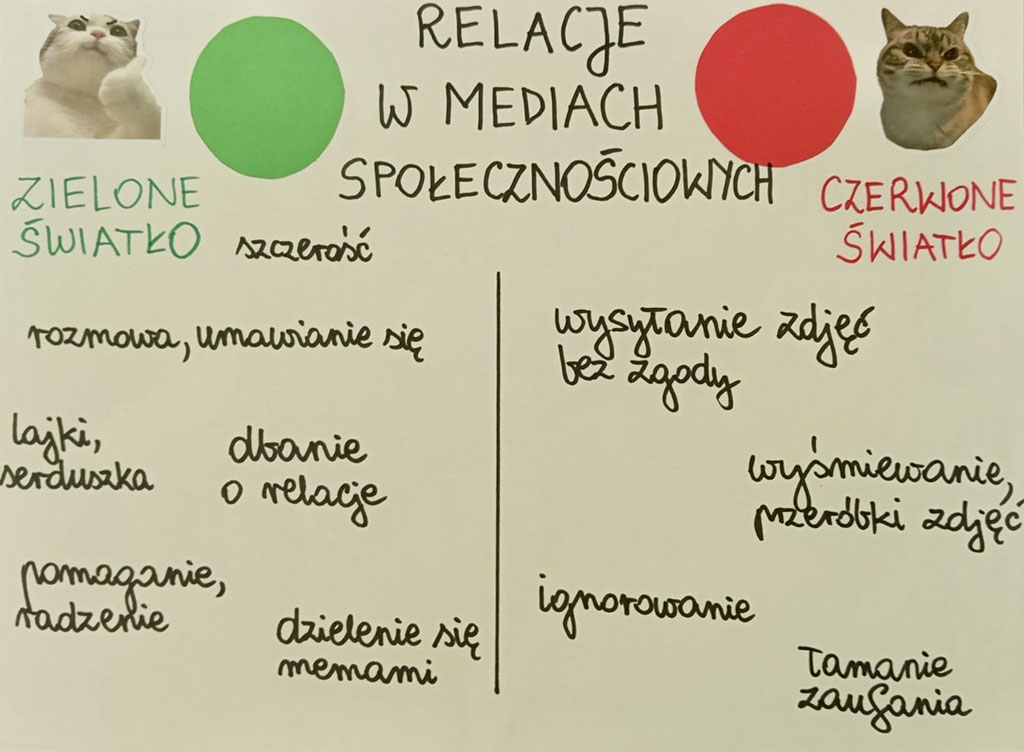 RELACJE
W MEDIACH
SPOŁECZNOŚCIOWYCH
ZIELONE
ŚWIATŁO
szczerość
rozmowa, umawianie się
lajki,
serduszka
dbanie
o relacje
pomaganie,
radzenie
dzielenie się
memami
CZERWONE
ŚWIATŁO
wysyłanie zdjęć
bez zgody
wyśmiewanie,
przeróbki zdjęć
ignorowanie
łamanie
zaufania